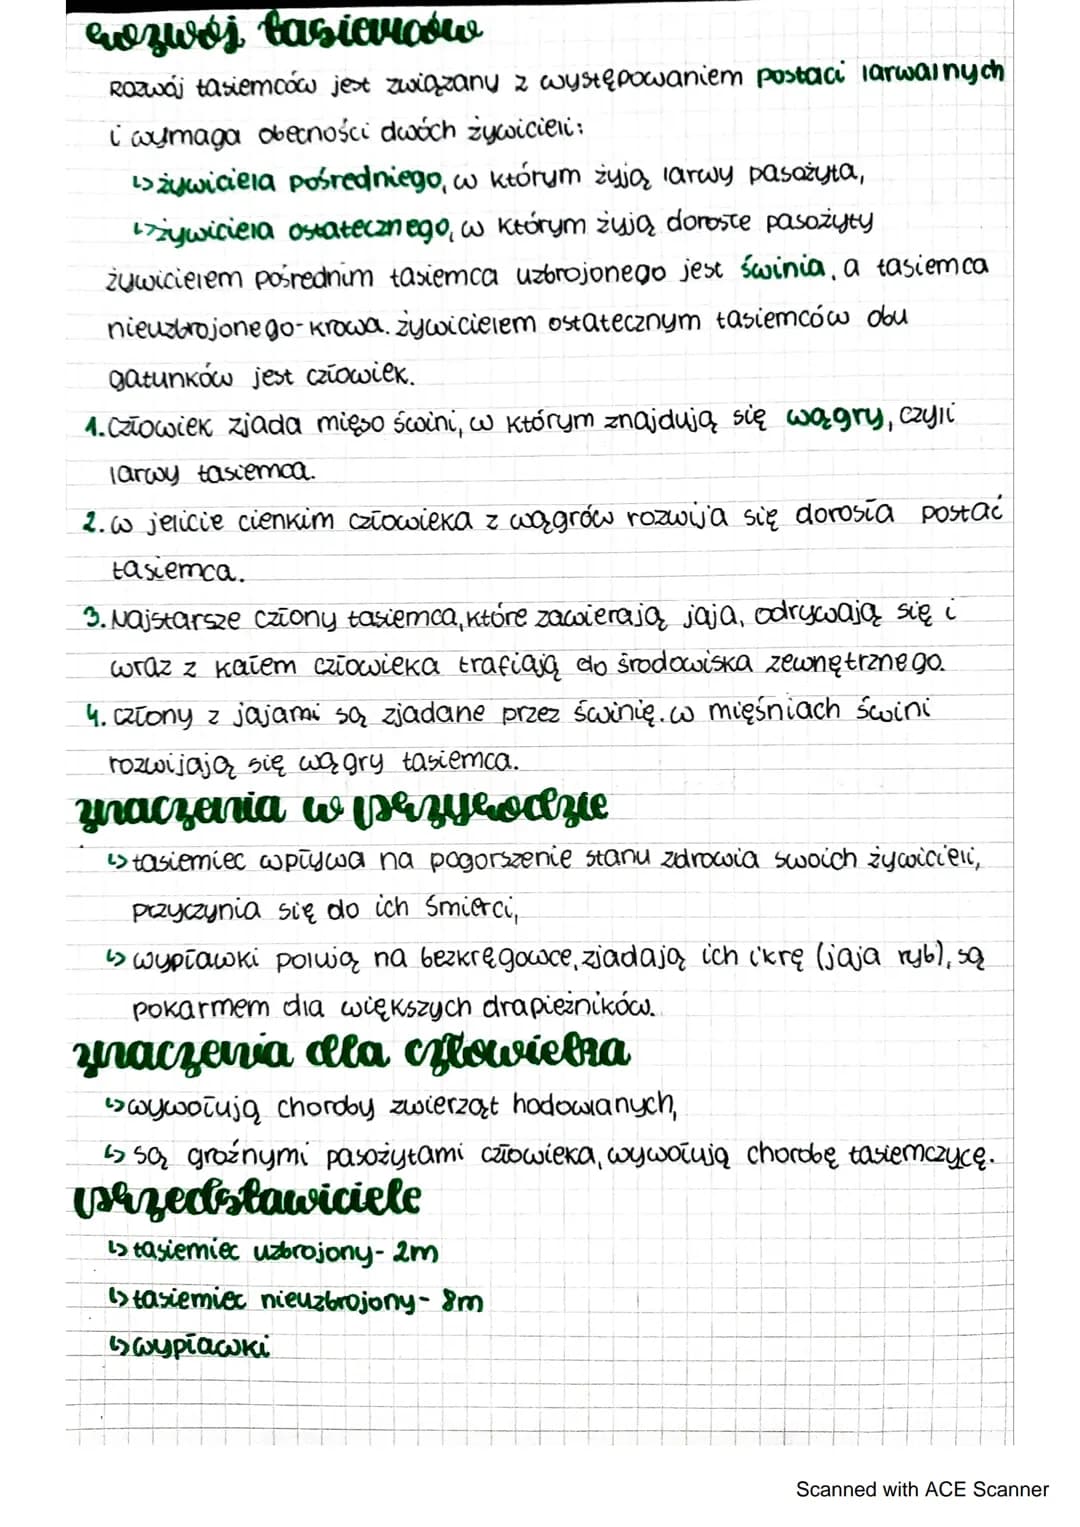 rozwój tasiemców
Rozwój tasiemców jest związany z występowaniem postaci larwalnych
i wymaga obecności dwóch żywicieli:
↳ żywiciela pośredniego, w którym żyją larwy pasożyta,
↳ żywiciela ostatecznego, w którym żyją dorosłe pasożyty
żywicielem pośrednim tasiemca uzbrojonego jest świnia, a tasiemca
nieuzbrojonego - krowa. żywicielem ostatecznym tasiemców obu
gatunków jest człowiek.
1. Człowiek zjada mięso świni, w którym znajdują się wągry, czyli
larwy tasiemca.
2. w jelicie cienkim człowieka z wągrów rozwija się dorosła postać
tasiemca.
3. Najstarsze człony tasiemca, które zawierają jaja, odrywają się i
wraz z kałem człowieka trafiają do środowiska zewnętrznego.
4. człony z jajami są zjadane przez świnię. w mięśniach świni
rozwijają się wągry tasiemca.
znaczenia w przyrodzie
↳ tasiemiec wpływa na pogorszenie stanu zdrowia swoich żywicieli,
przyczynia się do ich śmierci,
↳ wypławki polują na bezkręgowce, zjadają ich ikrę (jaja ryb), są
pokarmem dla większych drapieżników.
znaczenia dla człowieka
↳ wywołują choroby zwierząt hodowlanych,
↳ są groźnymi pasożytami człowieka, wywołują chorobę tasiemczycę.
przedstawiciele
↳ tasiemiec uzbrojony - 2m
↳ tasiemiec nieuzbrojony - 8m
↳ wypławki
Scanned with ACE Scanner